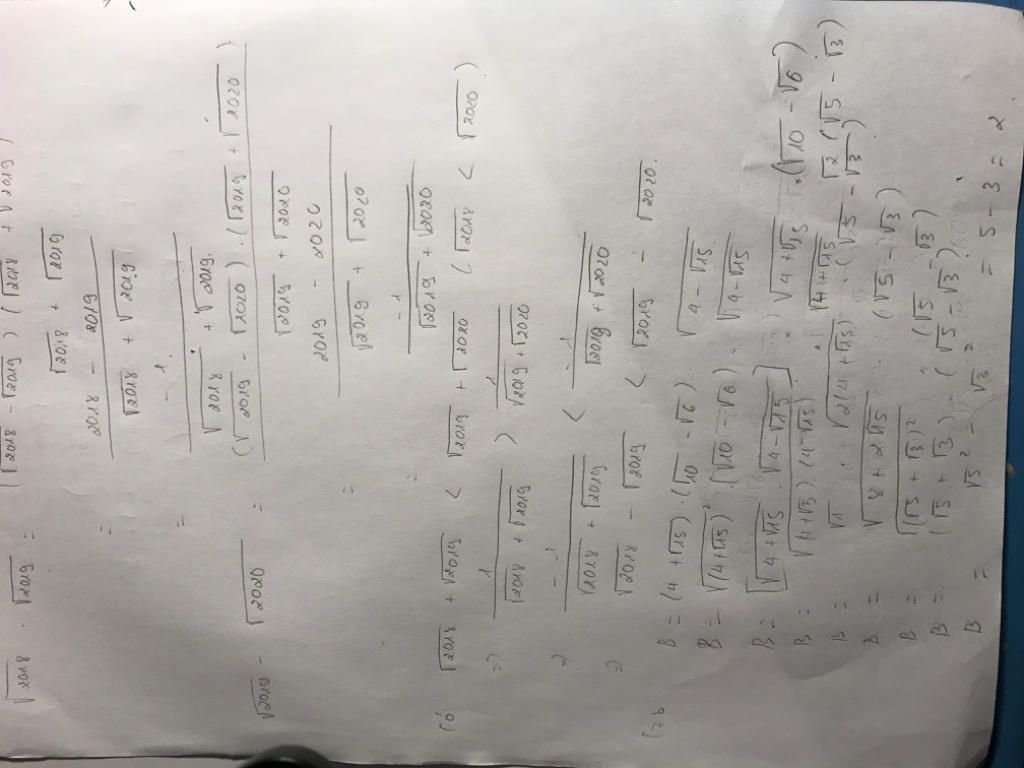 √2018 - √2019 = (√2018 - √2019)(√2018 + √2019) / √2018 + √2019
= 2018 - 2019 / √2018 + √2019
= -1 / √2018 + √2019
√2019 - √2020 = (√2019 - √2020).(√2019 + √2020) / √2019 + √2020
= 2019 - 2020 / √2019 + √2020
= -1 / √2019 + √2020
Có √2018 + √2019 < √2019 + √2020 (√2018 < √2020)
=> 1 / √2018 + √2019 > 1 / √2019 + √2020
=> -1 / √2018 + √2019 < -1 / √2019 + √2020
=> √2018 - √2019 < √2019 - √2020.
B = (4 + √15).(√10 - √6).√4 - √15
B = √(4+√15)² . (√10 - √6). √4 - √15
B = [√4+√15 . √4-√15] . √4+√15 . (√10 - √6)
B = √(4+√15).(4-√15) . √4+√15 . √2(√5 - √3)
B = √1 . √2(4+√15) . (√5 - √3)
B = √8 + 2√15 . (√5 - √3)
B = √(√5 + √3)² . (√5 - √3)
B = (√5 + √3) . (√5 - √3)
B = √5² - √3² = 5 - 3 = 2